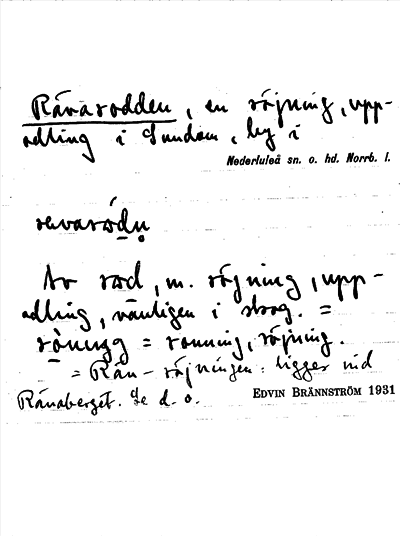 Rävarodden, en röjning, upp-
odling i Sundom, by i
Nederluleå sn. o. hd. Norrb. l.
Av rod, m. röjning, upp-
odling, vanligen i skog. =
= ronning, röjning.
= Räv-röjningen: ligger vid
Rävaberget. Se d. o.
EDVIN BRÄNNSTRÖM 1931